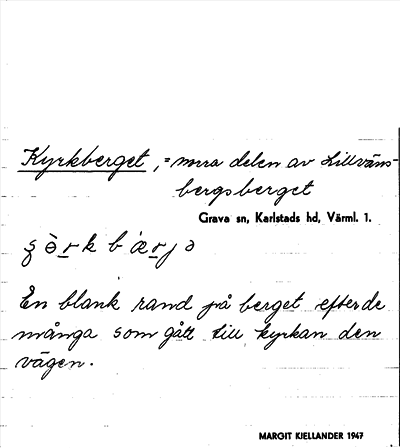 Kyrkberget, = norra delen av Lillväns-
bergsberget
Grava sn, Karlstads hd, Värml. 1.
En blank rand på berget efter de
många som gått till kyrkan den
vägen.
MARGIT KJELLANDER 1947